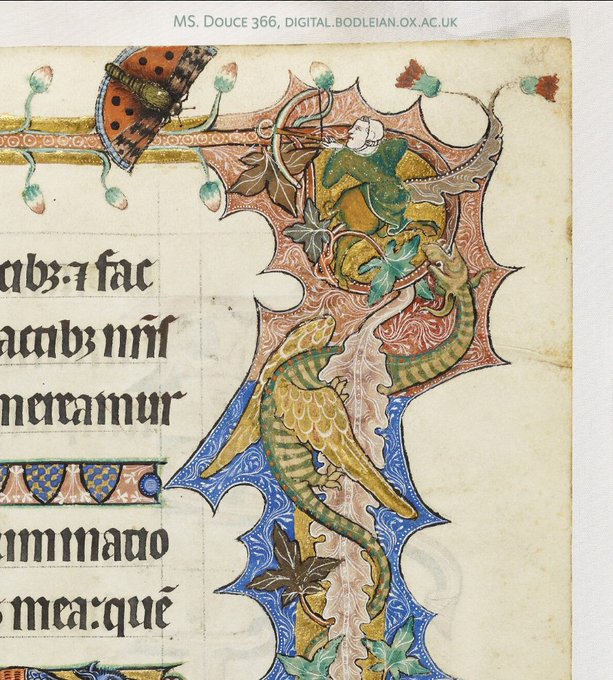 MS. DOUCE 366, DIGITAL.BODLEIAN.OX.AC.UK
cibꝫ·⁊ fac
actibꝫ nr̄is
mereamur
uminatio
s mea:quē